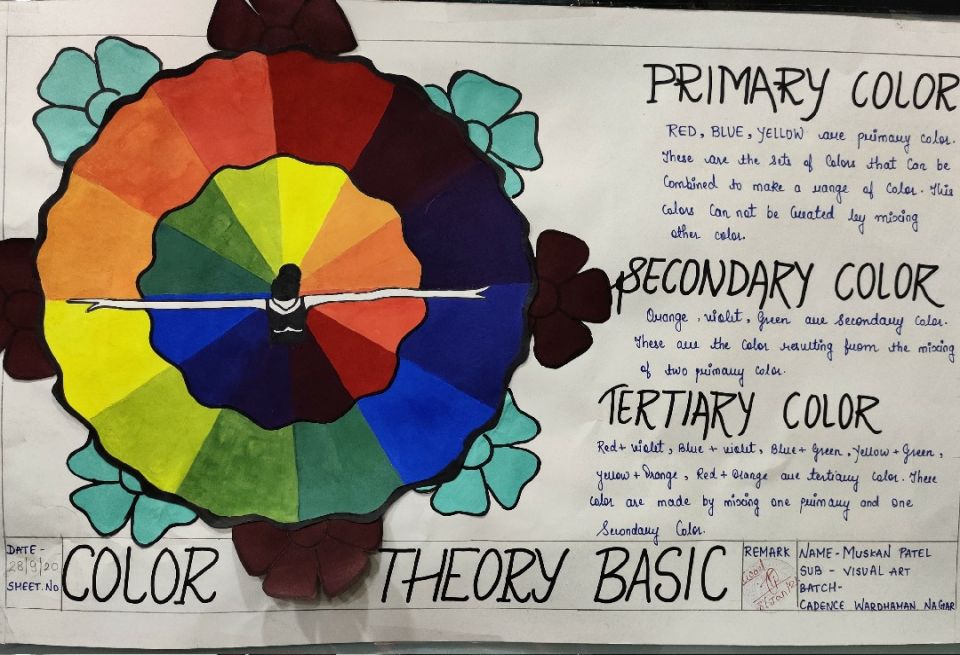 PRIMARY COLOR
RED, BLUE, YELLOW are primary color.
These are the sets of Colors that Can be
Combined to make a range of Color. This
colors Can not be Created by mixing
other color.
SECONDARY COLOR
Orange, violet, Green are Secondary Color.
These are the color resulting from the mixing
of two primary color.
TERTIARY COLOR
Red + violet, Blue + violet, Blue + Green, Yellow + Green,
Yellow + Orange, Red + Orange are tertiary color. These
color are made by mixing one primary and one
Secondary Color.
DATE -
28/9/20
SHEET.NO
COLOR THEORY BASIC
REMARK
NAME - MUSKAN PATEL
SUB - VISUAL ART
BATCH -
CADENCE WARDHAMAN NAGAR